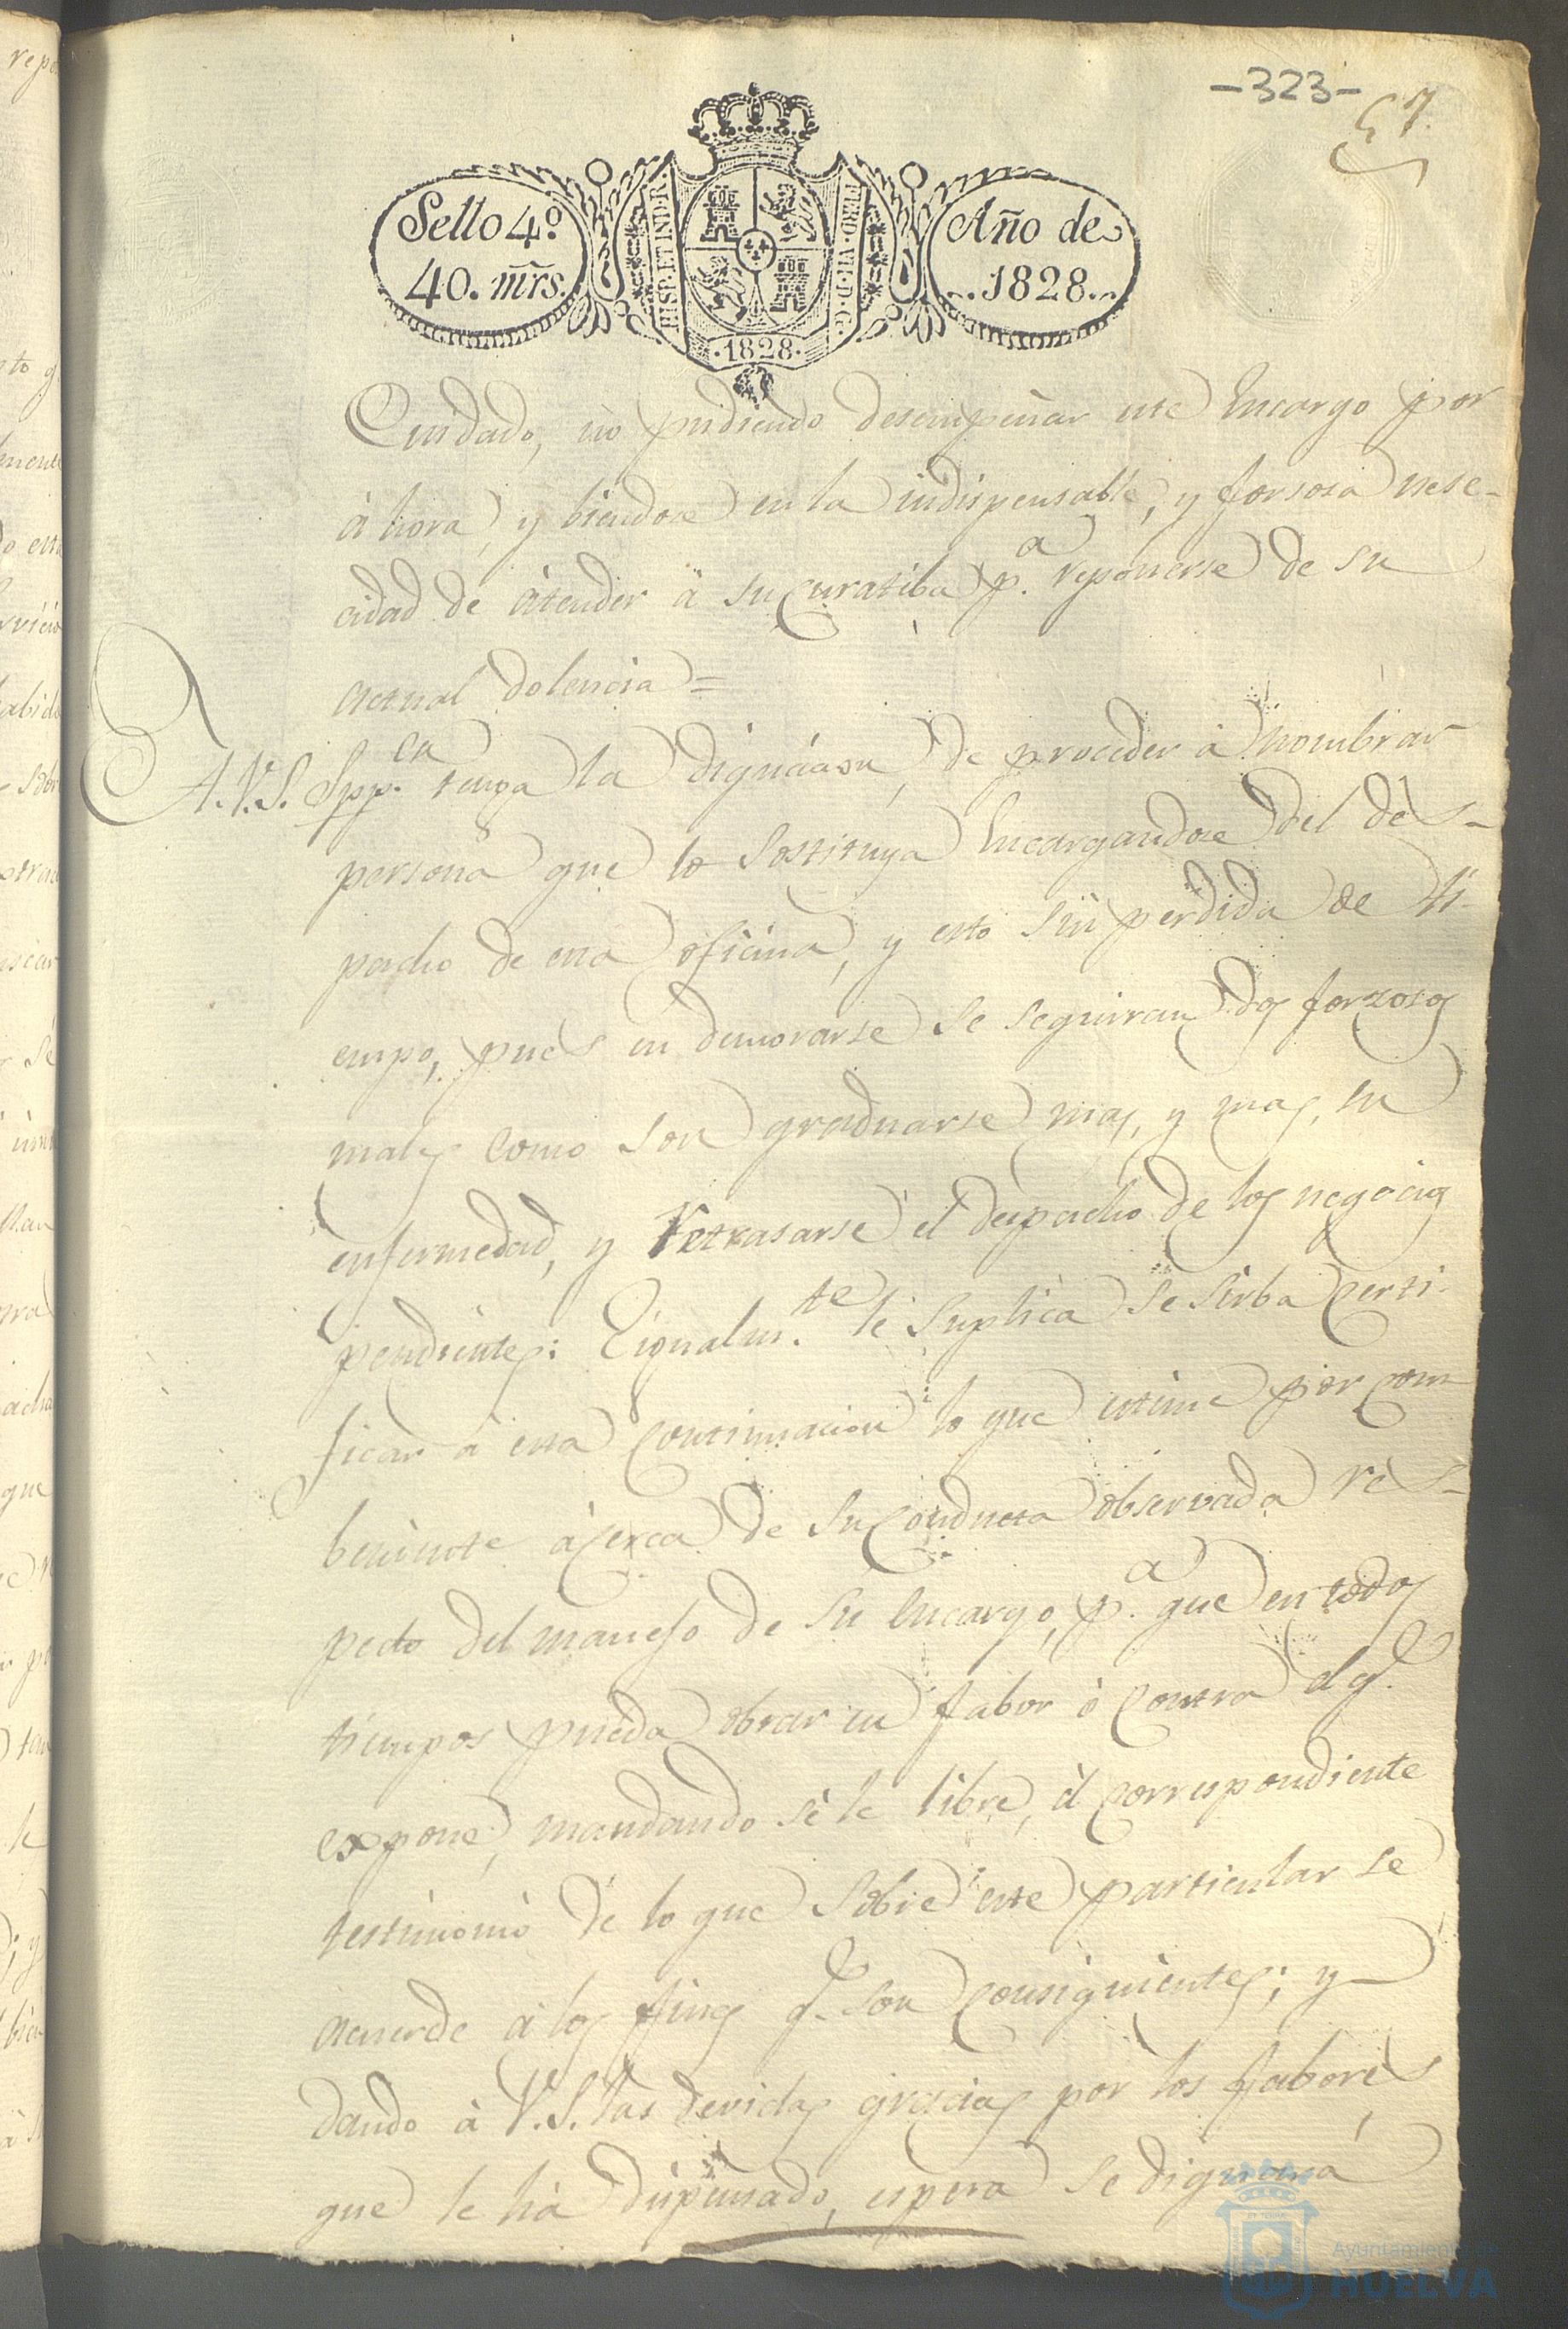 -323-
57
Sello 4º
40. mrs.
HISP. ET IND. R.
FERD. VII. D. G.
.1828.
Año de
.1828.
Cuidado, no pudiendo desempeñar este Encargo por
àhora, y biendose en la indispensable, y forsosa nese-
cidad de àtender à su Curatiba p.a reponerse de su
àctual dolencia =
A.V.S. Spp.ca tenga la dignácion, de proceder à nombrar
persona que lo Sostituya Encargandose del des-
pacho de esta oficina, y esto sin perdida de ti-
empo, pues en demorarse se seguirran dos forzosos
males como son graduarse mas, y mas, su
enfermedad, y retrasarse el despacho de los negocios
pendientes: Eigualm.te le suplica se sirba Certi-
ficar à esta Continuacion lo que estime por Com
beniente àcerca de su Conducta observada res-
pecto del manejo de su Encargo, p.a que en todos
tiempos pueda obrar en fabor ò Contra el q.e
expone, mandando sè le libre, èl Correspondiente
testimonio de lo que sobre este particular se
àcuerde à los fines q.e son Consiguientes; y
dando à V.S. las devidas gracias por los fabores
que le hà dispensado, espera se dignará
Ayuntamiento de
HUELVA